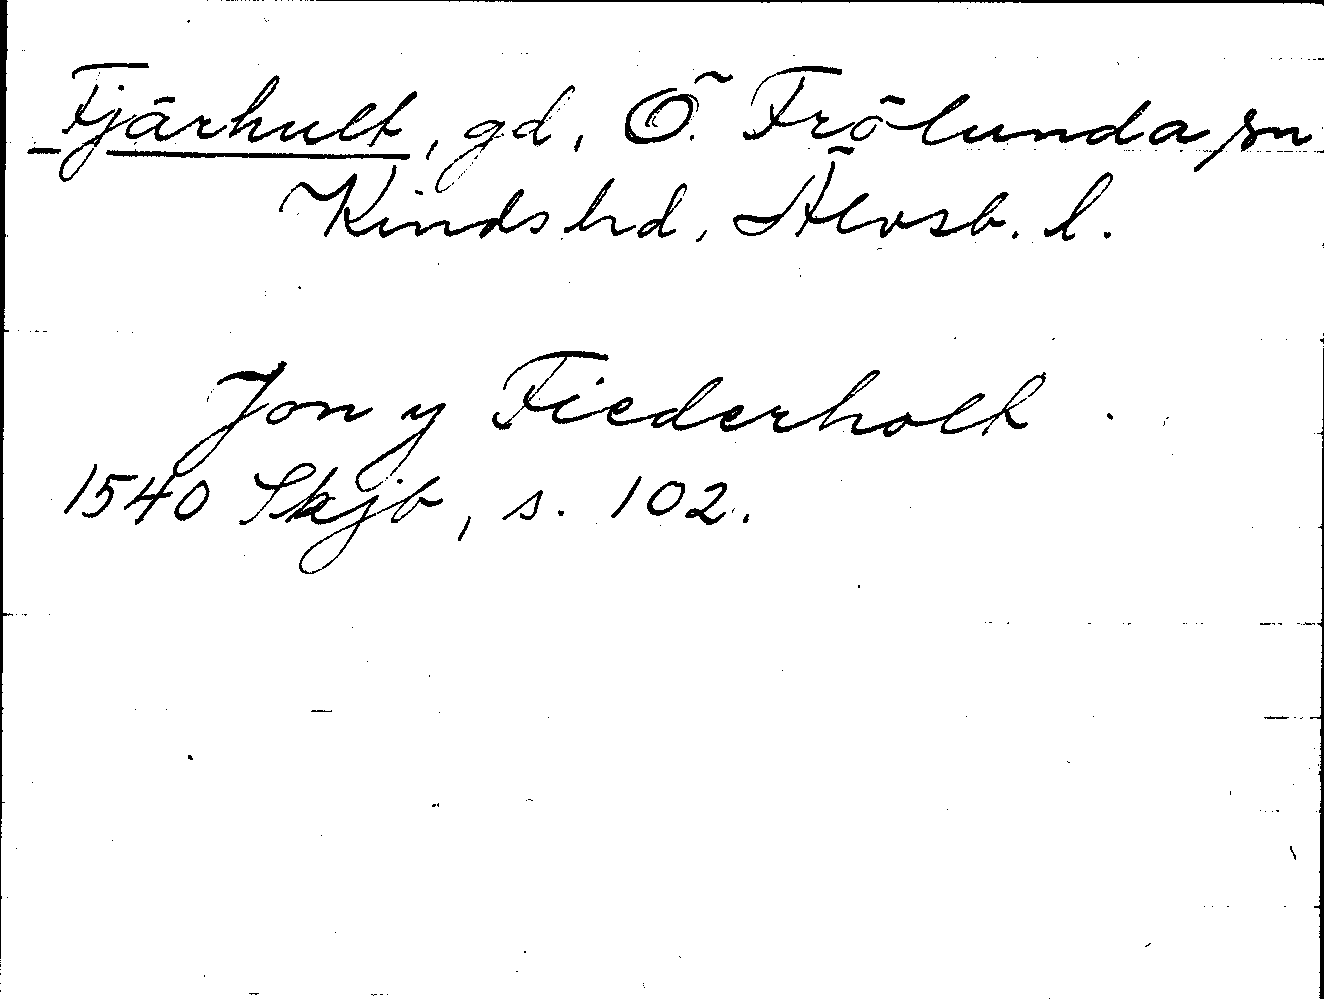 Fjärhult, gd, Ö. Frölunda sn
Kinds hd, Älvsb. l.
Jon y Fiederholt.
1540 Skjb, s. 102.